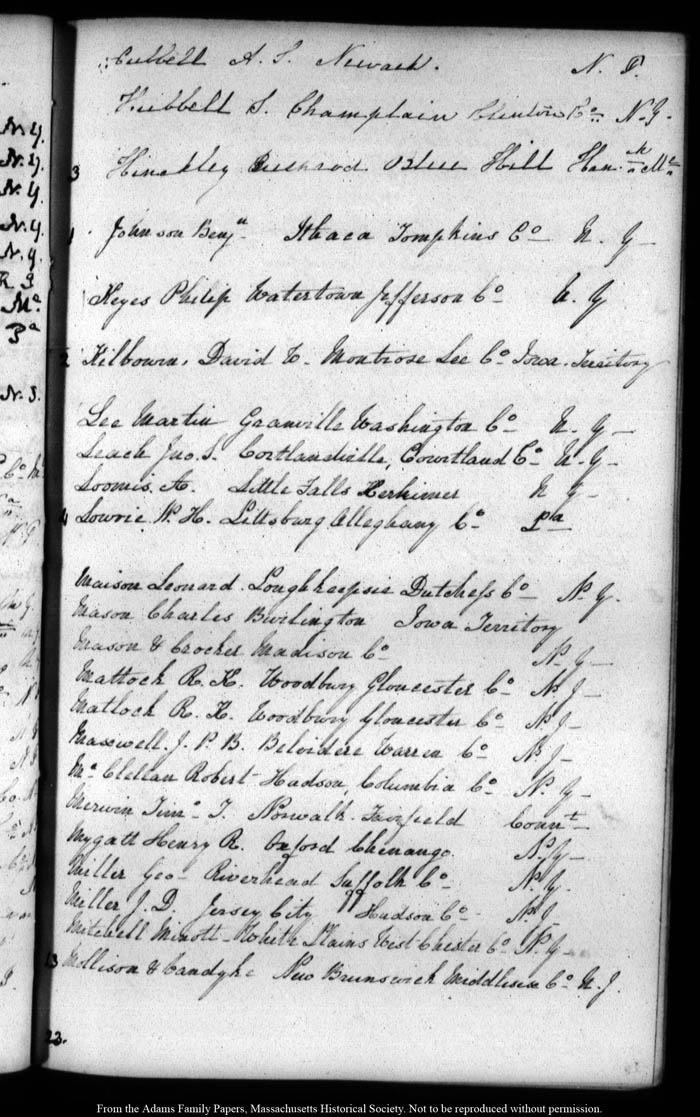 Hubbell A. S. Newark. N. J.
Hubbell S. Champlain Clinton Co N. Y.
3 Hinckley Bushrod Blue Hill Han. k Me
1 Johnson Benjn Ithaca Tompkins Co N. Y
Keyes Philip Watertown Jefferson Co N. Y
2 Kilbourn, David W. Montrose Lee Co Iowa Territory
Lee Martin Granville Washington Co N. Y
Leach Jno. S. Cortlandville, Courtland Co N. Y
Loomis A. Little Falls Herkimer N Y
4 Lowrie W. H. Pittsburg Alleghany Co Pa
Maison Leonard. Poughkeepsie Dutchess Co N. Y.
Mason Charles Burlington Iowa Territory
Mason & Crocker Madison Co N. Y
Mattock R. K. Woodbury Gloucester Co N. J
Matlock R. K. Woodbury Gloucester Co N. J
Maxwell. J. P. B. Belvidere Warren Co N. J
Mc Clellan Robert Hudson, Columbia Co N. Y
Merwin Timo T. Norwalk Fairfield Connt
Mygatt Henry R. Oxford Chenango. N. Y
Miller Geo Riverhead Suffolk Co N. Y.
Miller J. D. Jersey City Hudson Co N. J
Mitchell Minott White Plains West Chester Co N. Y
13 Mollison & Vandyke New Brunswick Middlesex Co N. J.
23.
N. Y.
N. Y.
N. Y.
N. Y.
N. Y.
R I
Me
Pa
N. J.
From the Adams Family Papers, Massachusetts Historical Society. Not to be reproduced without permission.